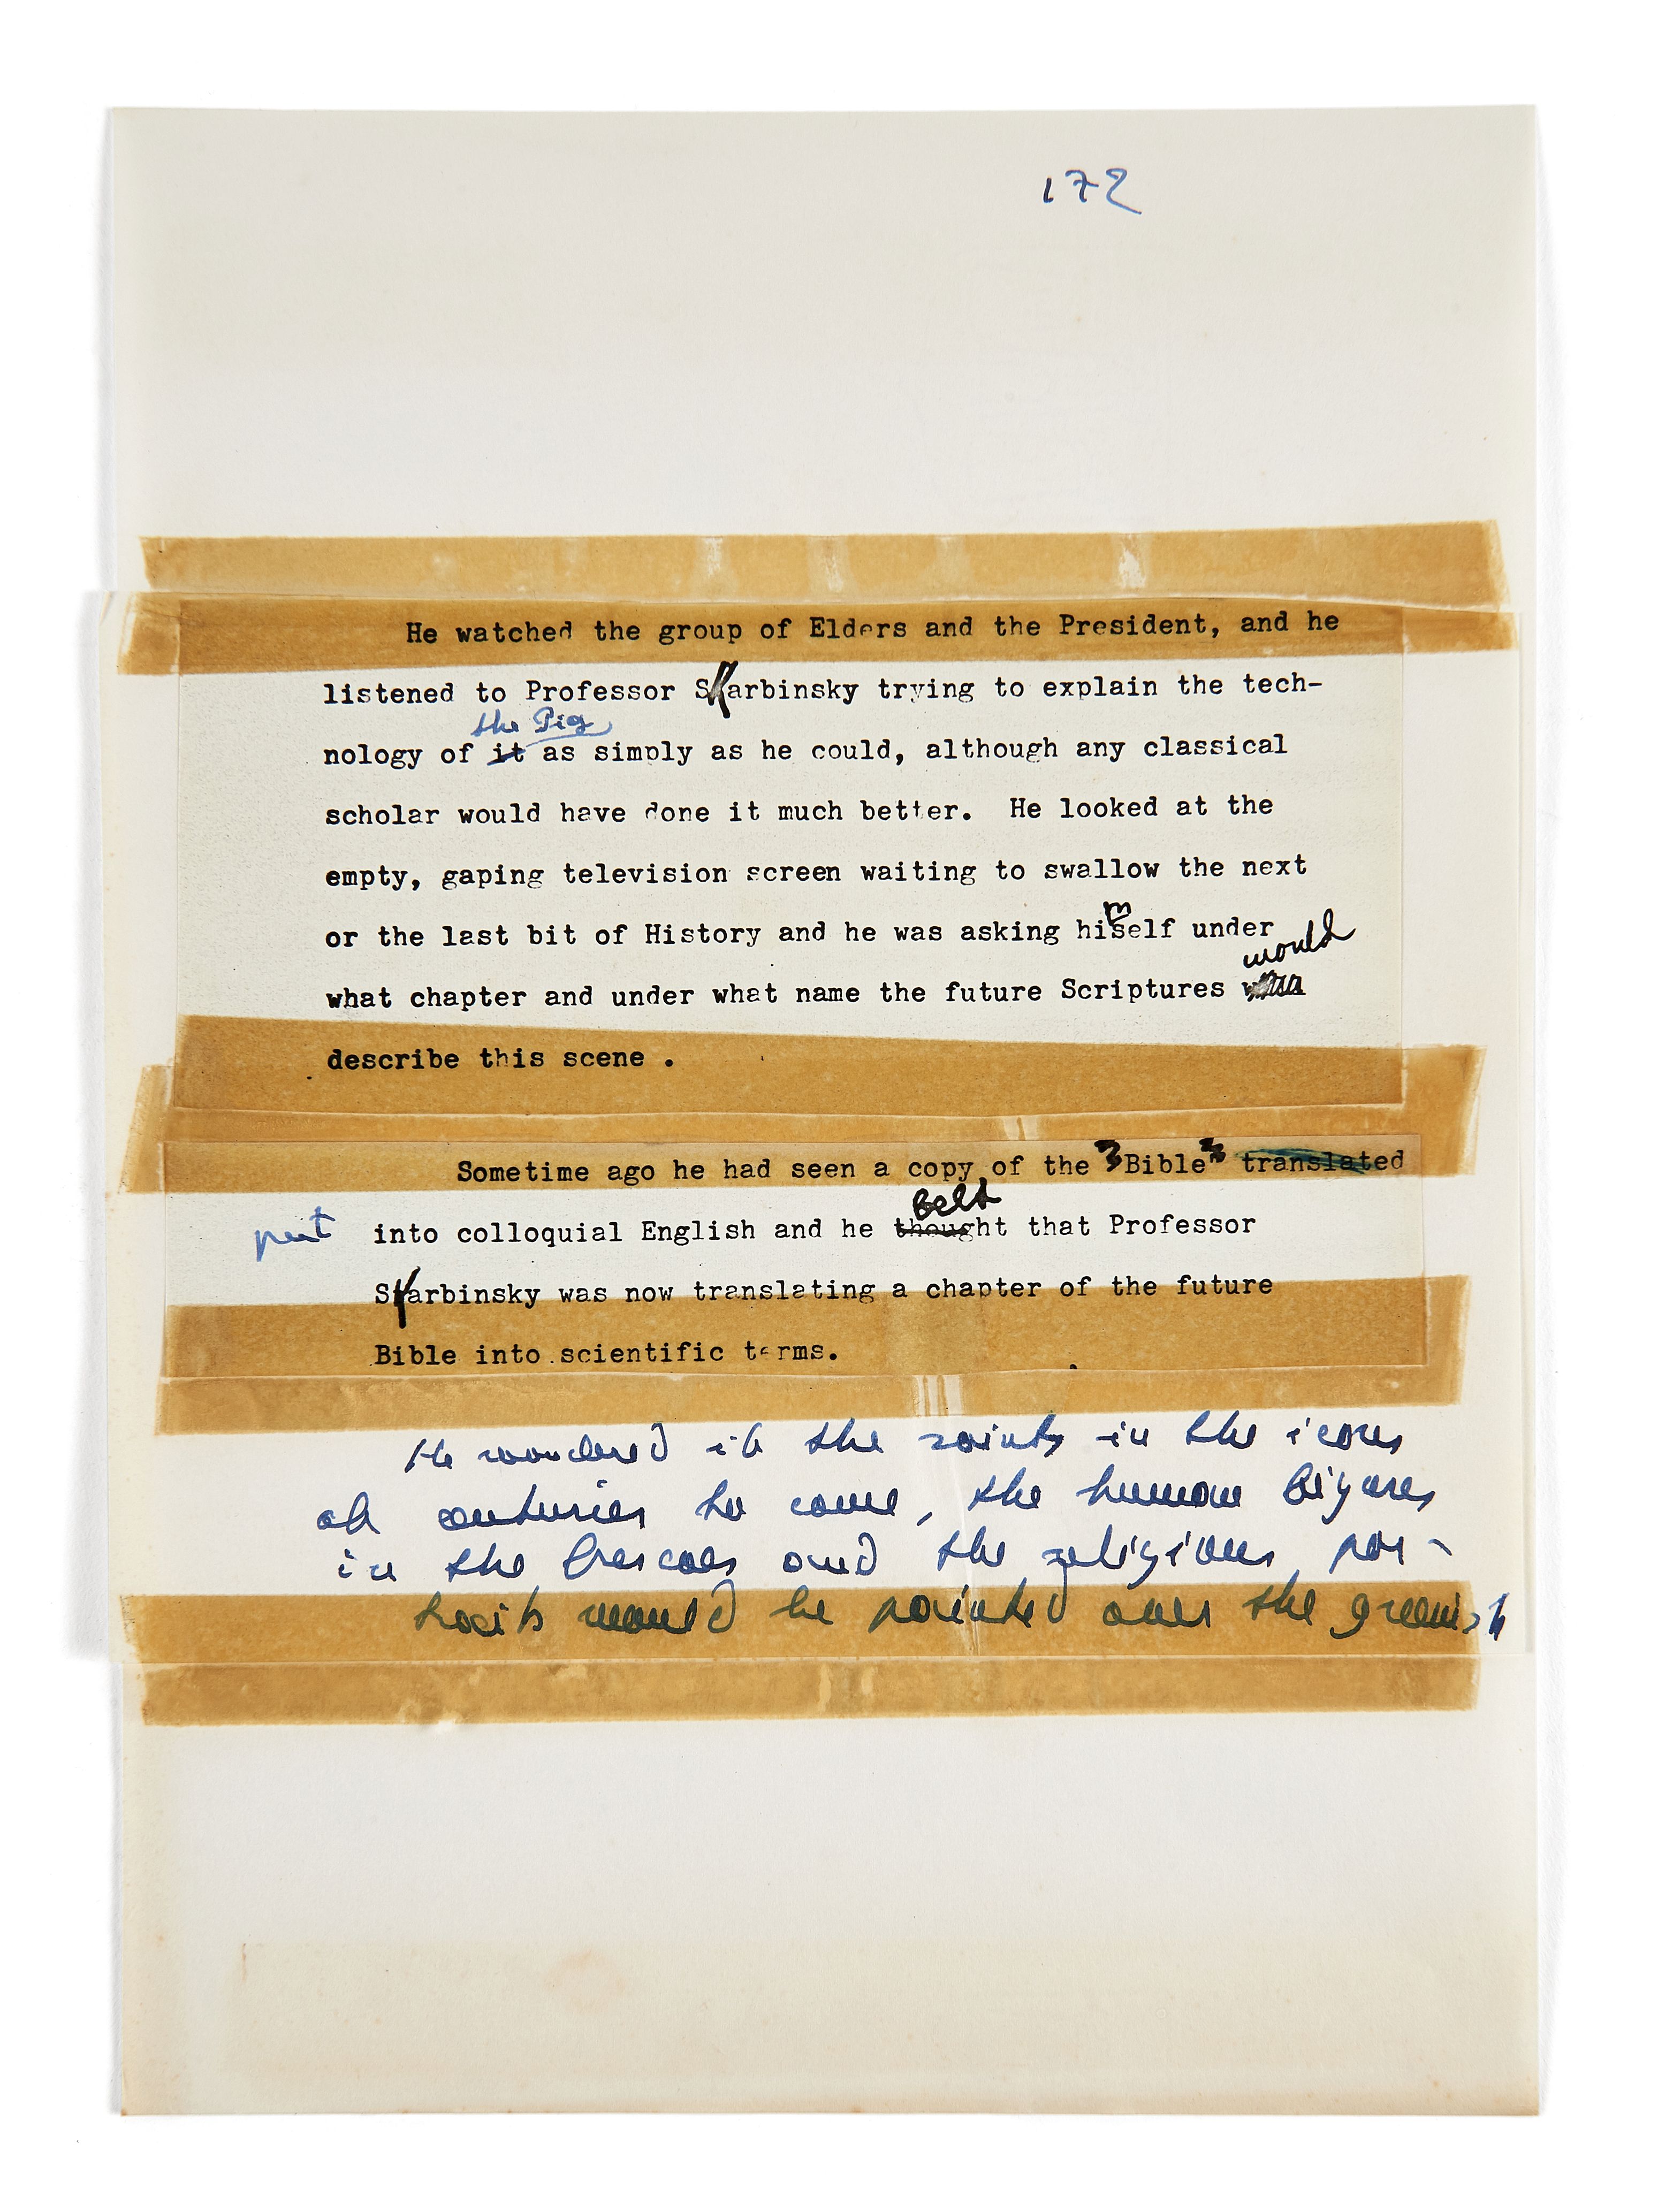 172
He watched the group of Elders and the President, and he
listened to Professor Skarbinsky trying to explain the tech-
the Pig
nology of it as simply as he could, although any classical
scholar would have done it much better. He looked at the
empty, gaping television screen waiting to swallow the next
m
or the last bit of History and he was asking hiself under
would
what chapter and under what name the future Scriptures
describe this scene .
Sometime ago he had seen a copy of the "Bible" translated
felt
put into colloquial English and he thought that Professor
Skarbinsky was now translating a chapter of the future
Bible into scientific terms.
He wondered if the saints in the icons
of centuries to come, the human figures
in the frescoes and the religious por-
traits would be painted over the